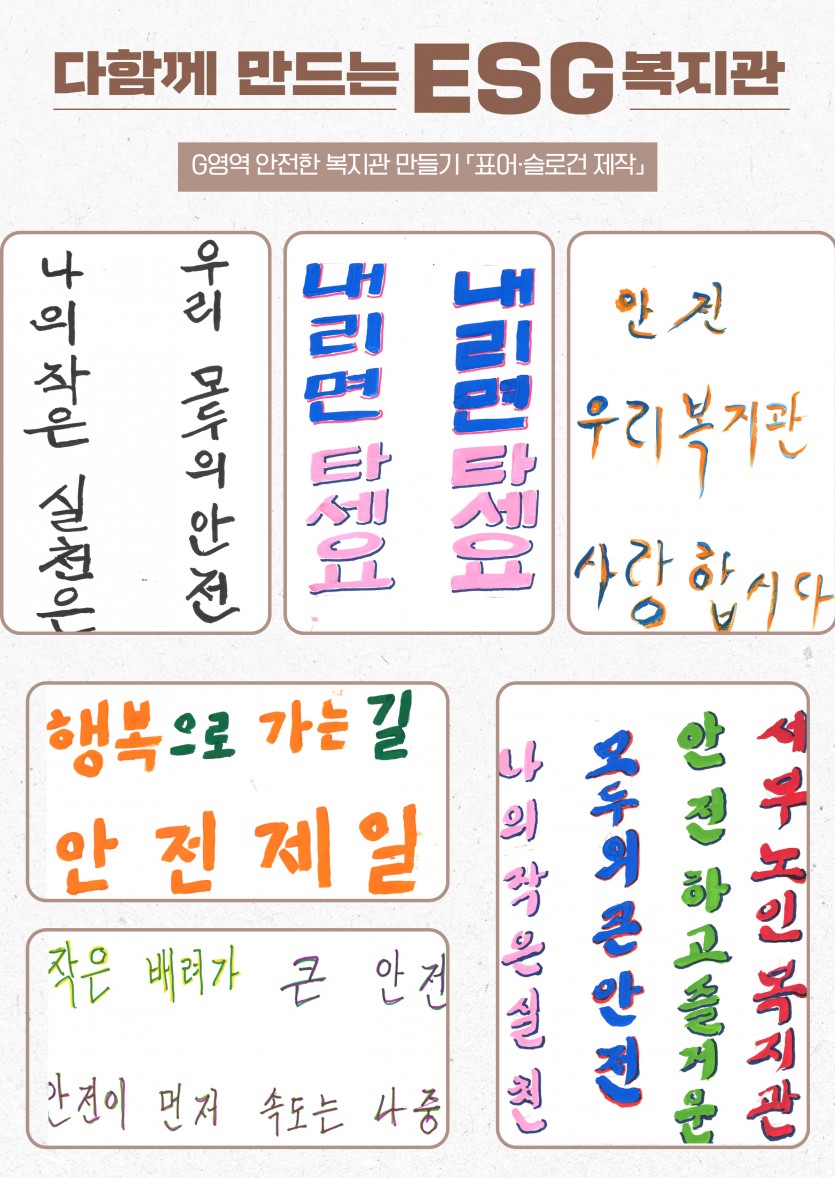 다함께 만드는 ESG 복지관
G영역 안전한 복지관 만들기 「표어·슬로건 제작」
나의 작은 실천은
우리 모두의 안전
내리면 타세요
내리면 타세요
안전
우리복지관
사랑합시다
행복으로 가는 길
안전제일
작은 배려가 큰 안전
안전이 먼저 속도는 나중
나의작은실천
모두의큰안전
안전하고즐거운
서부노인복지관